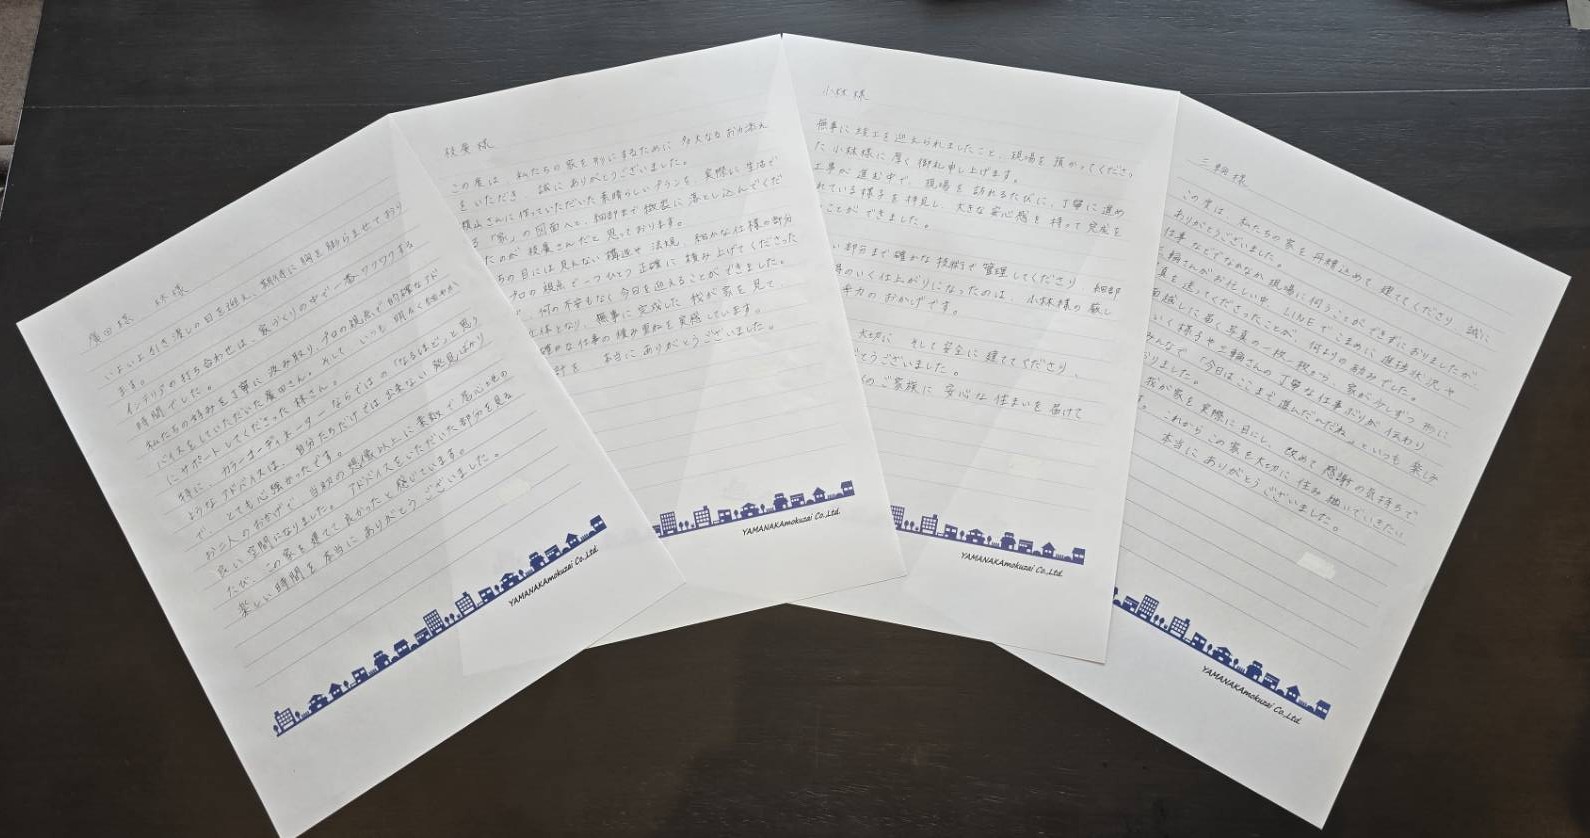 廣田様 林様
いよいよ引き渡しの日を迎え、期待に胸を膨らませており
ます。
インテリアの打ち合わせは、家づくりの中で一番ワクワクする
時間でした。
私たちの好みを丁寧に汲み取り、プロの視点で的確なアド
バイスをしていただいた廣田さん。そして、いつも明るく細やか
にサポートしてくださった林さん。
特に、カラーコーディネーターならではの「なるほど」と思う
ようなアドバイスは、自分たちだけでは出来ない発見ばかり
で、とても心強かったです。
お二人のおかげで、当初の想像以上に素敵で居心地の
良い空間になりました。アドバイスをいただいた部分を見る
たび、この家を建てて良かったと感じています。
楽しい時間を本当にありがとうございました。
YAMANAKAmokuzai Co.,Ltd.
様
この度は、私たちの家を形にするために多大なるお力添え
をいただき、誠にありがとうございました。
横山さんに作っていただいた素晴らしいプランを、実際に生活で
る「家」の図面へと、細部まで緻密に落とし込んでくだ
たのが さんだと思っております。
ちの目には見えない構造や法規、細かな仕様の部分
プロの視点で一つひとつ正確に積み上げてくださった
、何の不安もなく今日を迎えることができました。
体となり、無事に完成した我が家を見て、
確かな仕事の積み重ねを実感しています。
計を、本当にありがとうございました。
YAMANAKAmokuzai Co.,Ltd.
小林様
無事に竣工を迎えられましたこと、現場を預かってくださっ
た小林様に厚く御礼申し上げます。
工事が進む中で、現場を訪れるたびに、丁寧に進め
れている様子を拝見し、大きな安心感を持って完成を
ことができました。
い部分まで確かな技術で管理してくださり、細部
得のいく仕上がりになったのは、小林様の厳し
力のおかげです。
大切に、そして安全に建ててくださり、
とうございました。
くのご家族に安心な住まいを届けて
YAMANAKAmokuzai Co.,Ltd.
三輪様
この度は、私たちの家を丹精込めて建ててくださり、誠に
ありがとうございました。
仕事などでなかなか現場に伺うことができずにおりましたが、
三輪さんがお忙しい中、LINEでこまめに進捗状況や
真を送ってくださったことが、何よりの励みでした。
面越しに届く写真の一枚一枚から、家が少しずつ形に
いく様子や三輪さんの丁寧な仕事ぶりが伝わり、
みんなで「今日はここまで進んだんだね」といつも楽しみ
おりました。
我が家を実際に目にし、改めて感謝の気持ちで
す。これからこの家を大切に住み継いでいきたい
本当にありがとうございました。
YAMANAKAmokuzai Co.,Ltd.